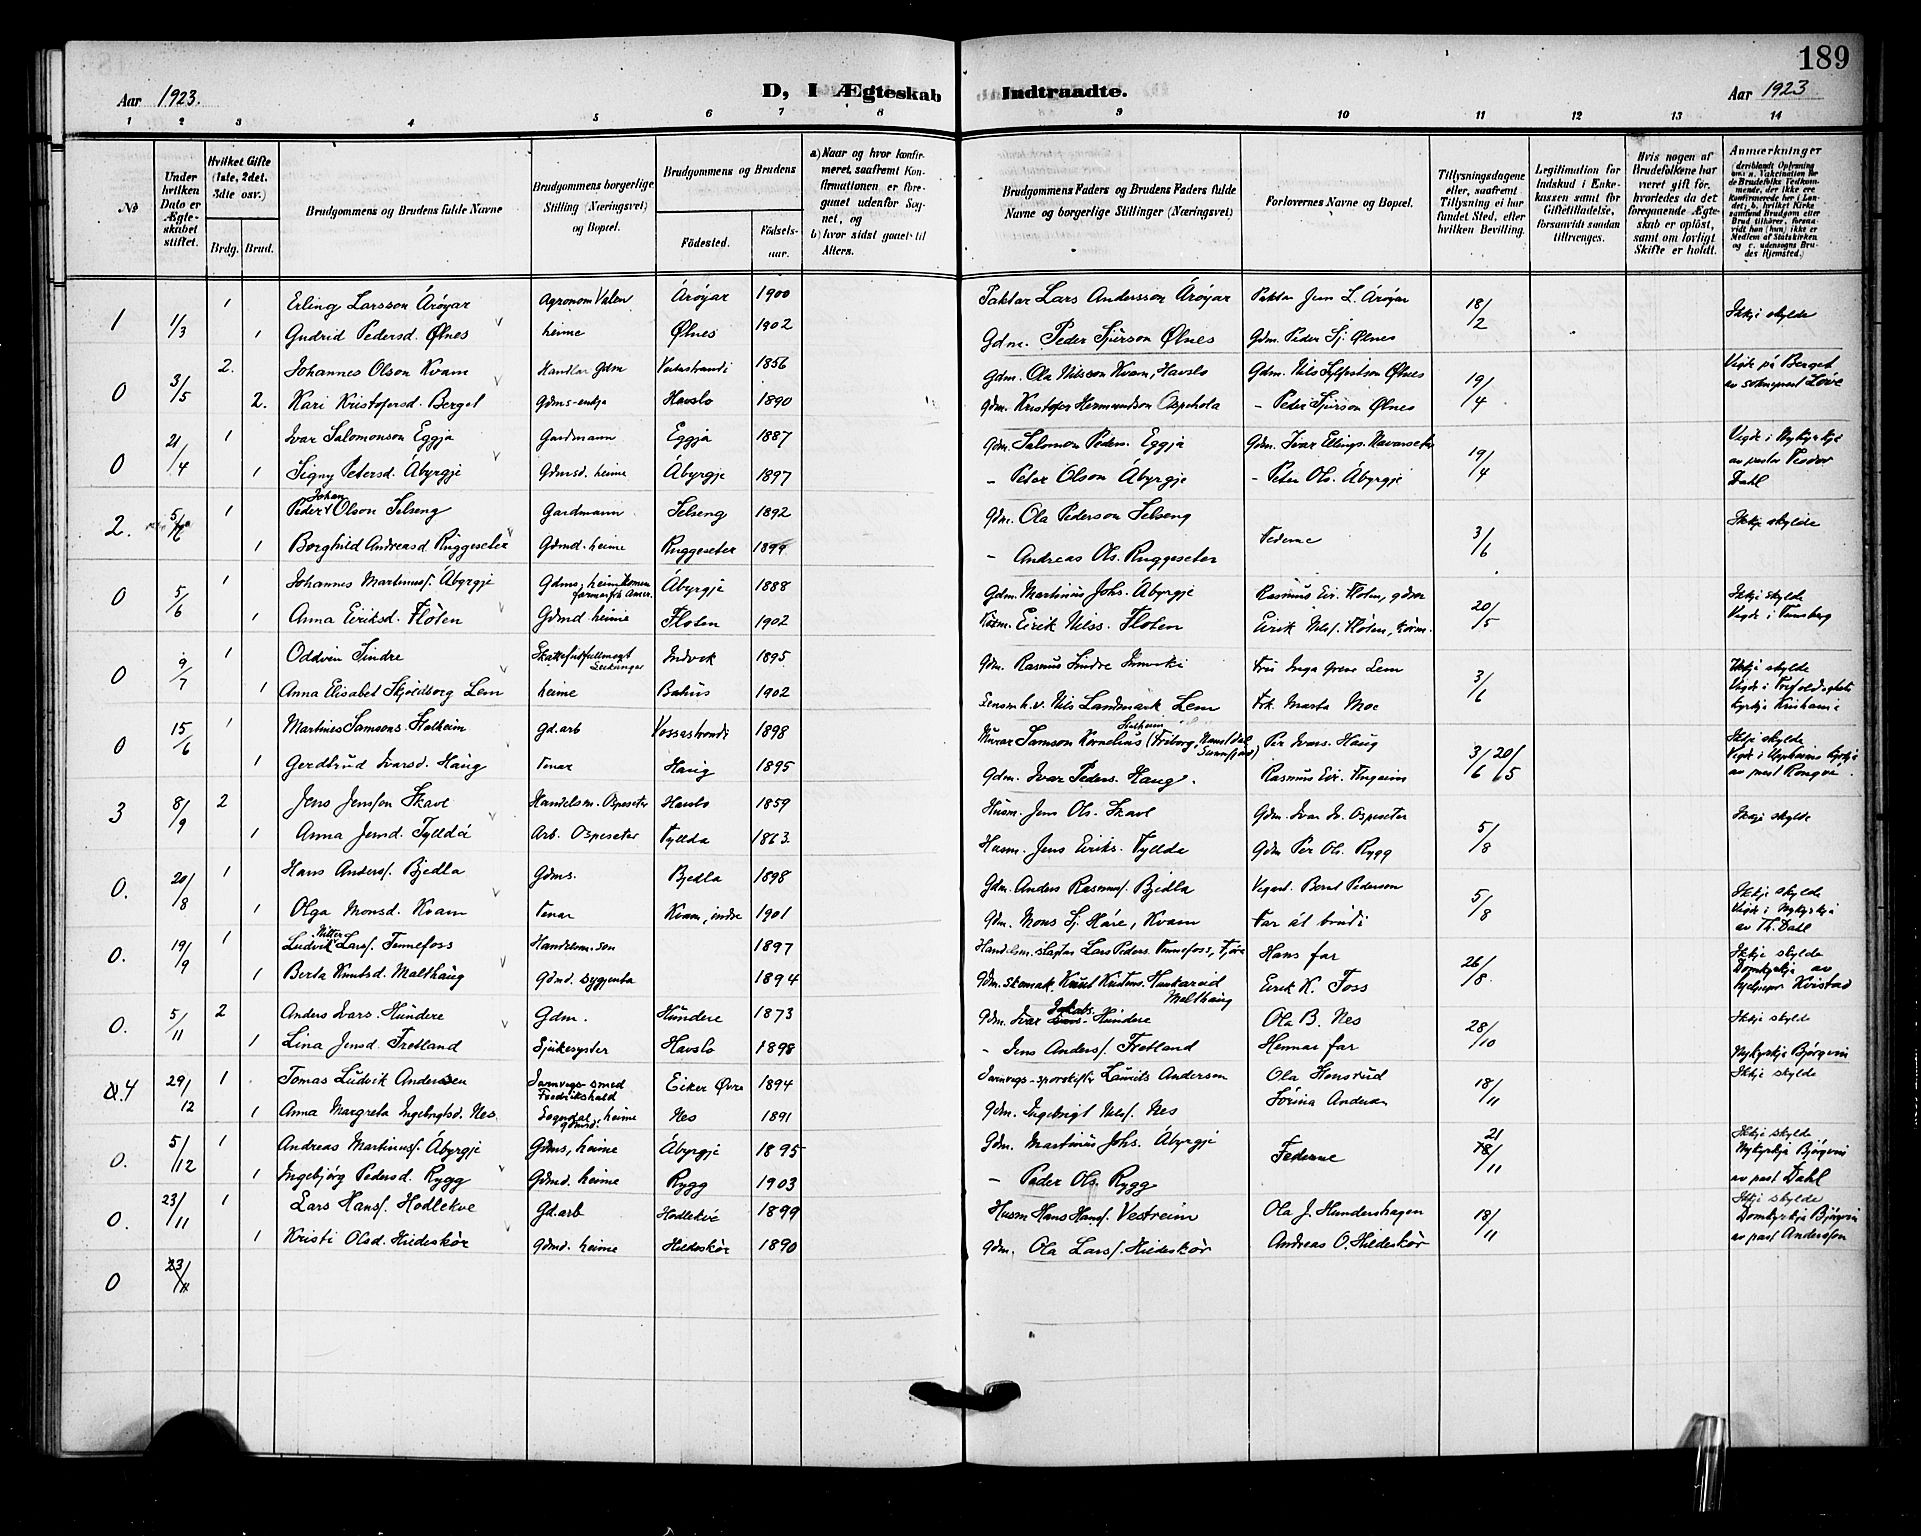 189
Aar 1923.
D, I Ægteskab Indtraadte.
Aar 1923
1 2 3 4 5 6 7 8 9 10 11 12 13 14
No
Under hvilken Dato er Ægteskabet stiftet.
Hvilket Gifte (1ste, 2det, 3die osv.)
Brdg. Brud.
Brudgommens og Brudens fulde Navne
Brudgommens borgerlige Stilling (Næringsvei) og Bopæl.
Brudgommens og Brudens
Födested. Födselsaar.
a) Naar og hvor konfirmeret, saafremt Konfirmationen er foregaaet udenfor Sognet, og
b) hvor sidst gaaet til Alters.
Brudgommens Faders og Brudens Faders fulde Navne og borgerlige Stillinger (Næringsvei)
Forlovernes Navne og Bopæl.
Tillysningsdagene eller, saafremt Tillysning ei har fundet Sted, efter hvilken Bevilling.
Legitimation for Indskud i Enkekassen samt for Giftetilladelse, forsaavidt saadan tiltrænges.
Hvis nogen af Brudefolkene har været gift för, hvorledes da det foregaaende Ægteskab er oplöst, samt om lovligt Skifte er holdt.
Anmærkninger
1 1/3 1 Erling Larsson Årøyar Agronom Valen Årøyar 1900 Paktar Lars Andersson Årøyar Paktar Jens L. Årøyar 18/2 Ikkje skylde
1 Gudrid Pedersd. Ølnes heime Ølnes 1902 Gdm. Peder Sjurson Ølnes Gdm. Peder Sj. Ølnes
0 3/5 2. Johannes Olson Kvam Handlar Gdm 1856 Gdm. Ola Nilsson Kvam, Havslo Gdm. Nils Ølnes 19/4 Vigde på Berget
2. Kari Kristofersd. Berget Gdms-enkja Havslo 1890 Gdm. Kristofer Hermundson - Peder Sjurson Ølnes av sokneprest
0 21/4 1 Ivar Salomonson Eggja Gardmann Eggja 1887 Gdm. Salomon Peders. Eggja Gdm. Ivar Ellings. 19/4 Vigde i Nykyrkja
1 Signy Petersd. Åbyrgje Gdmsd. heime Åbyrgje 1897 - Peter Olson Åbyrgje - Peter Ols. Åbyrgje av pastor Dahl
2. 5/6 1 Peder Johan Olson Selseng Gardmann Selseng 1892 Gdm. Ola Pederson Selseng Federne 3/6 Ikkje skylde
1 Borghild Andreasd Ruggeseter Gdmd. heime Ruggeseter 1899 - Andreas Ols. Ruggeseter
0 5/6 1 Johannes Martinusf. Åbyrgje Gdms, heimkomen farmar frå Amer. Åbyrgje 1888 Gdm. Martinus Johs. Åbyrgje Rasmus Eir. Fløten, gdm 20/5 Ikkje skylde
1 Anna Eiriksd. Fløten Gdmd heime Fløten 1902 Eirik Nils. Fløten Eirik Nilsf. Fløten, Vigde i Tunsberg
0 9/7 1 Oddvin Sindre Indvik 1895 Gdm. Rasmus Sindre Innvik Fru Inga Greve Lem 3/6 Ikkje skylde
1 Anna Elisabet Skjoldborg Lem heime 1902 Lensm. h.v. Nils Landmark Lem Frk. Marta Moe kyrkje Kristiania
0 15/6 1 Martinus Samsons. Stalheim Gd.arb Vossastrondi 1898 Murar Samson Kornelius Stalheim Per Ivars. Haug 3/6 20/5 Ikkje skylde
1 Gerdtrud Ivarsd. Haug Tenar Haug 1895 Gdm. Ivar Peders. Haug. Rasmus Eir.
3 8/9 2 Jens Jensson Skave Handelsm. Ospeseter Havslo 1859 Husm. Jens Ols. Skave Gdm. Ivar Iv. Ospeseter 5/8 Ikkje skylde
1 Anna Jensd. Fyllda Arb. Ospeseter Fyllda 1863. Husm. Jens Eiriks. Fyllda Gdm Per Ols. Rygg
0. 20/8 1 Hans Andersf. Bjedla Gdms. Bjedla 1898 Gdm. Anders Rasmusf. Bjedla Bernt Pederson 5/8 Ikkje skylde
1 Olga Monsd. Kvam Tenar Kvam, indre 1901 Gdm. Mons Sj. Håre, Kvam Far åt brudi Vigde i Nykyrkja av Th. Dahl
0. 19/9 1 Ludvik Nitter Larsf. Tennefoss Handelsm. son 1897 Handelsm. Lars Peders. Tennefoss, Hans far 26/8. Ikkje skylde
1 Berta Knutsd. Malthaug Gdmd. bygjenta 1894 Gdm. Knut Kristens. Malthaug Eirik K. Foss Domkyrkja av hjelpepr Kvistad
0. 5/11 2 Anders Ivars. Hundere Gdm. Hundere 1873 Gdm. Ivar Jakobs. Hundere Ola B. Nes 28/10 Ikkje skylde
1 Lina Jensd. Fretland Sjukesyster Havslo 1898 - Jens Andersf. Fretland Hennar far Nykyrkja Bjørgvin
4 29/12 1 Tomas Ludvik Andersen Jarnvegs-smed Fredrikshald Eiker Øvre 1894 Jarnvegs-sporskifter Laurits Andersen Ola Hensrud 18/11 Ikkje skylde
1 Anna Margreta Ingebrigtsd. Nes. Sogndal, heime gdmsd. Nes 1891 Gdm. Ingebrigt Nilsf. Nes Jørina Andersen
0. 5/12 1 Andreas Martinusf. Åbyrgje Gdms, heime Åbyrgje 1895 Gdm. Martinus Johs. Åbyrgje Federne 21/11 Ikkje skylde
1 Ingebjørg Pedersd. Rygg Gdmd. heime Rygg 1903 - Peder Ols. Rygg Nykyrkja Bjørgvin av past Dahl
0. 23/11 1 Lars Hansf. Hodlekve Gd.arb Hodlekve 1899 Husm Hans Hansf. Vestreim Ola J. Hundershagen 18/11 Ikkje skylde
1 Kristi Olsd. Hildeskør Gdmd. heime Hildeskør 1890 Gdm. Ola Larsf. Hildeskør Andreas O. Hildeskør Domkyrkja Bjørgvin av past Andersson
0 23/11